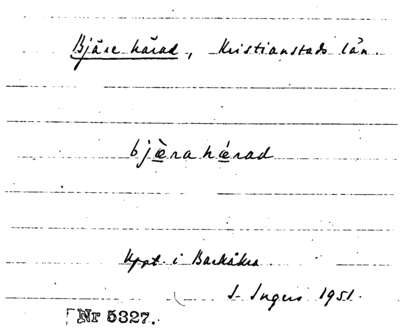 Bjäre härad, Kristianstads län.
bjæ̀ra hǽrad
Uppt. i Barkåkra
I. Ingers 1951.
Nr 5327.